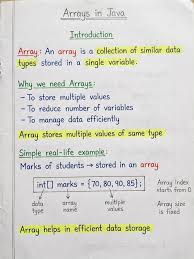 Arrays in Java
Introduction
Array: An array is a collection of similar data
types stored in a single variable.
Why we need Arrays:
- To store multiple values
- To reduce number of variables
- To manage data efficiently
Array stores multiple values of same type
Simple real-life example:
Marks of students → stored in an array
int[] marks = {70, 80, 90, 85};
Array Index
starts from 0
data
type
array
name
multiple
values
Array size
is fixed
Array helps in efficient data storage